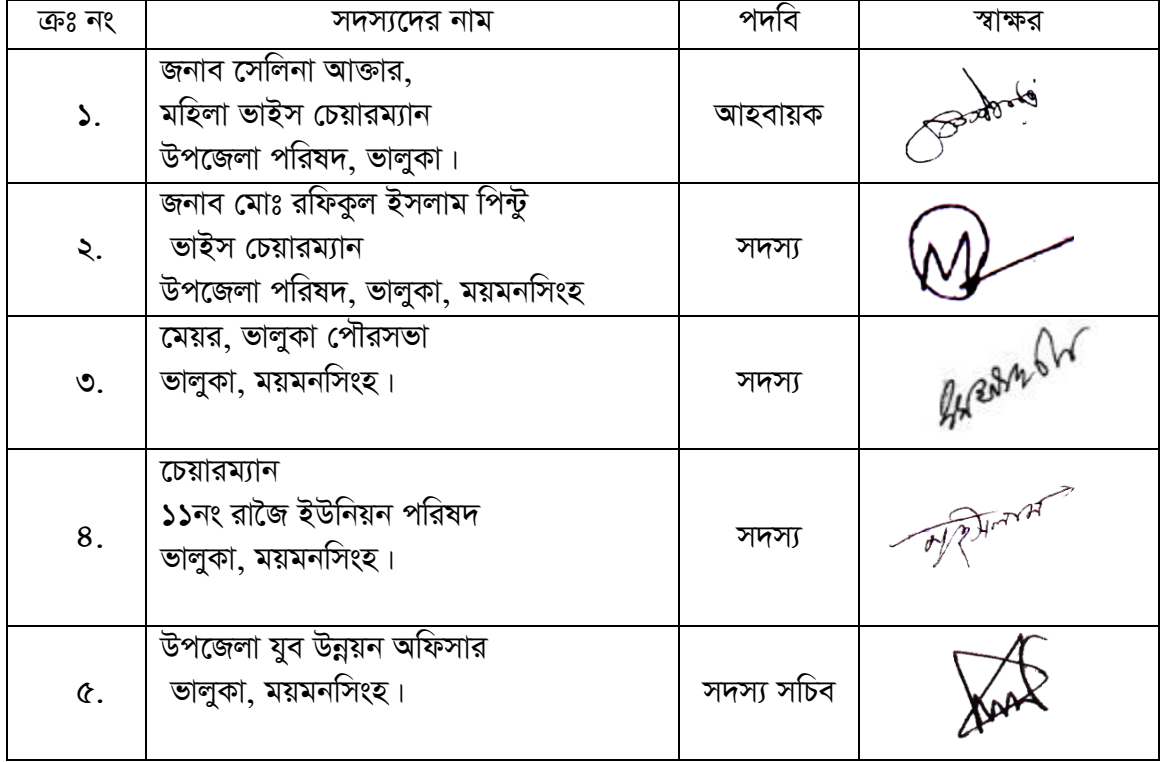 ক্রঃ নং সদস্যদের নাম পদবি স্বাক্ষর
১. জনাব সেলিনা আক্তার,
মহিলা ভাইস চেয়ারম্যান
উপজেলা পরিষদ, ভালুকা।
আহবায়ক
২. জনাব মোঃ রফিকুল ইসলাম পিন্টু
ভাইস চেয়ারম্যান
উপজেলা পরিষদ, ভালুকা, ময়মনসিংহ
সদস্য
৩. মেয়র, ভালুকা পৌরসভা
ভালুকা, ময়মনসিংহ।
সদস্য
৪. চেয়ারম্যান
১১নং রাজৈ ইউনিয়ন পরিষদ
ভালুকা, ময়মনসিংহ।
সদস্য
৫. উপজেলা যুব উন্নয়ন অফিসার
ভালুকা, ময়মনসিংহ।
সদস্য সচিব